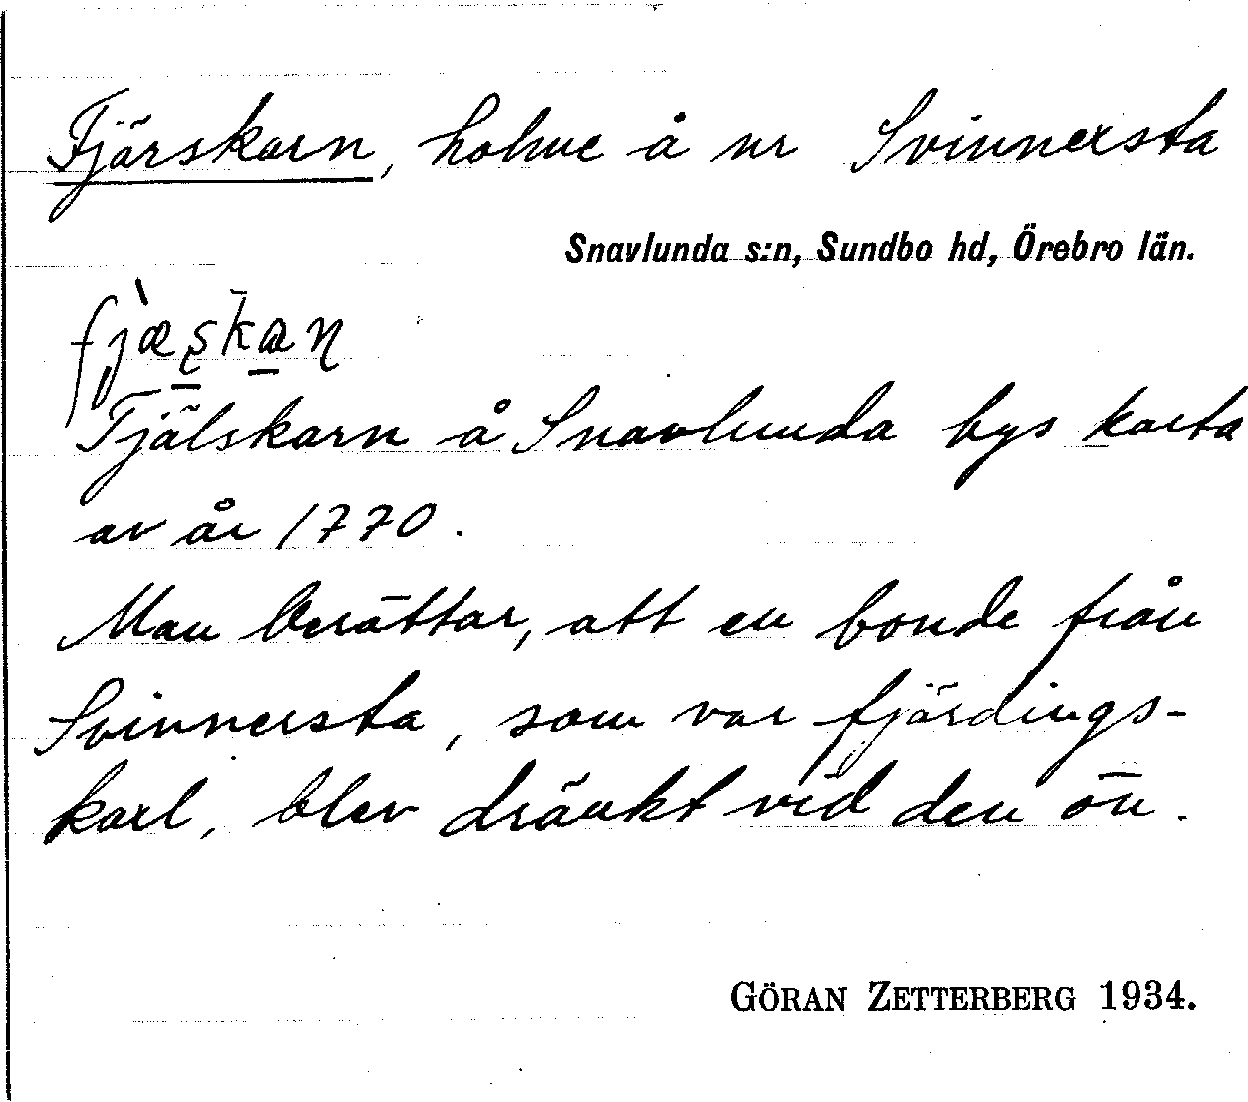 Fjärskarn, holme å nr Svinnersta
Snavlunda s:n, Sundbo hd, Örebro län.
fjæ̀s̠ka̠ɳ
Fjälskarn å Snavlunda bys karta
av år 1770.
Man berättar, att en bonde från
Svinnersta, som var fjärdings-
karl, blev dränkt vid den ön.
GÖRAN ZETTERBERG 1934.